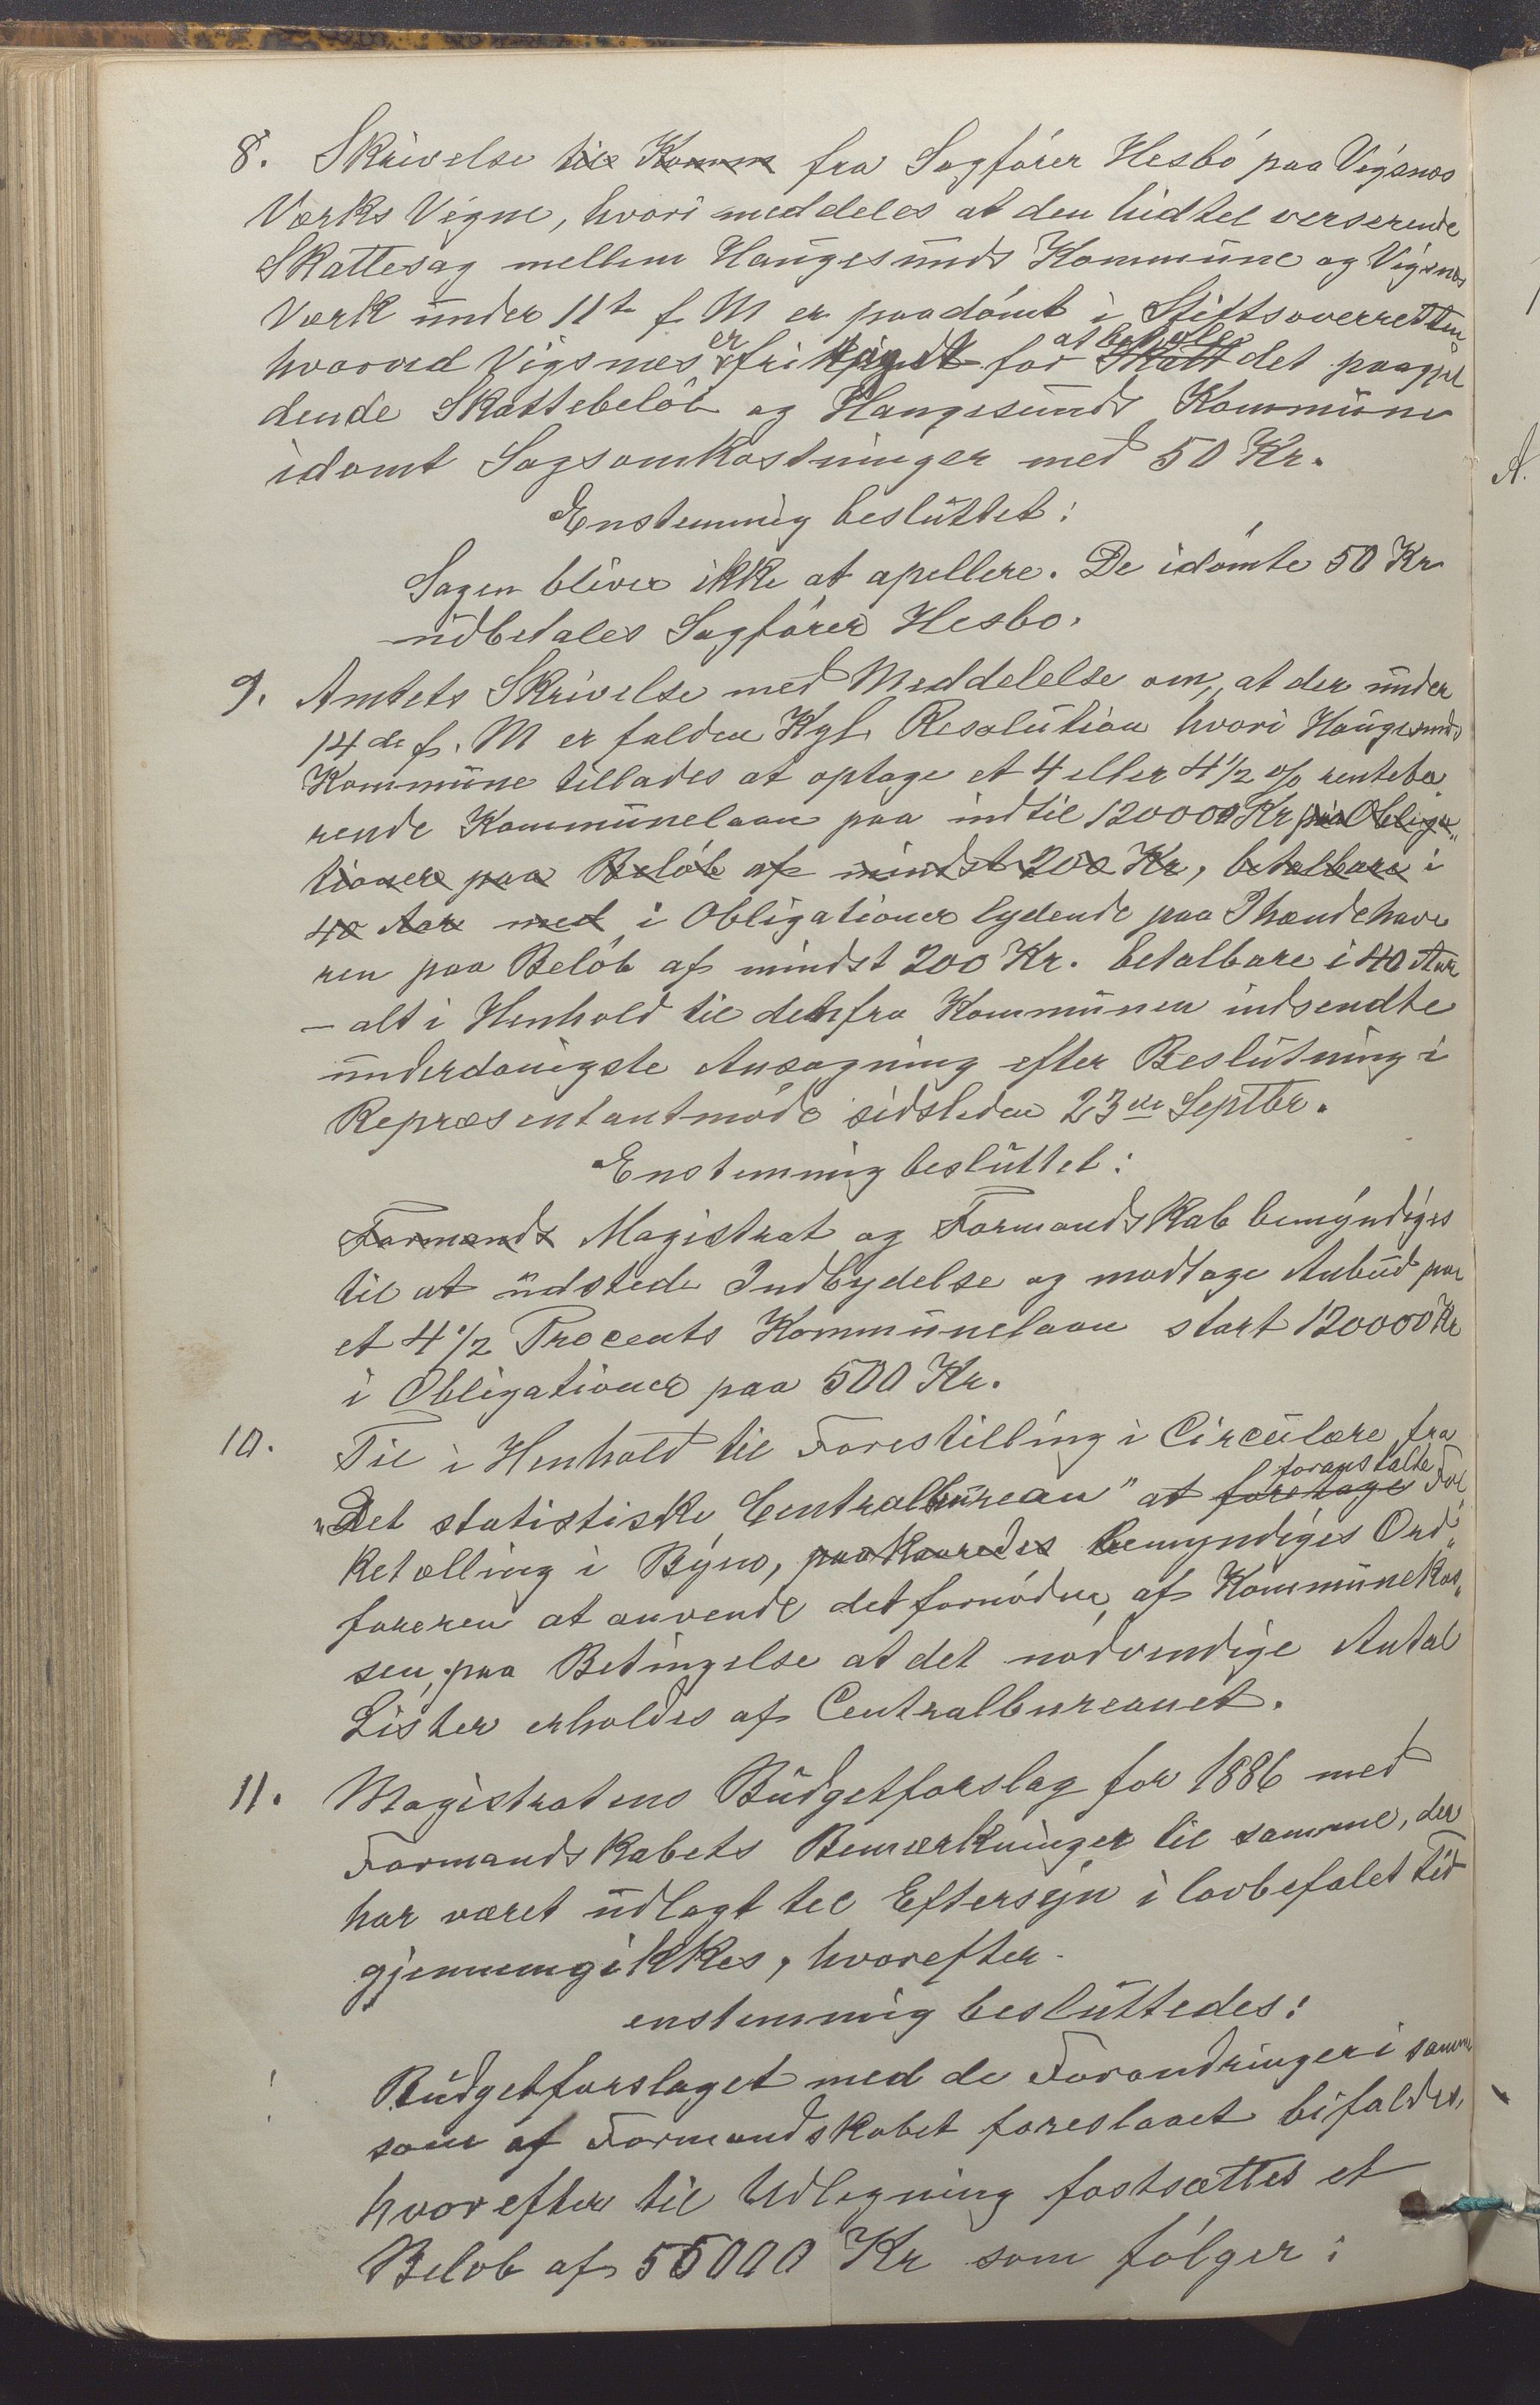 8. Skrivelse til Komm fra Sagfører Hesbö paa Vigsnæs
Værks Vegne, hvori meddeles at den hidtil verserende
Skattesag mellem Haugesunds Kommune og Vigsnæs
Værk under 11te f. M er paadömt i Stiftsoverretten,
hvorved Vigsnæs er fri for at betale Skatt det paagjæl
dende Skattebelöb og Haugesunds Kommune
idømt Sagsomkostninger med 50 Kr.
Enstemmig besluttet:
Sagen bliver ikke at apellere. De idömte 50 Kr
udbetales Sagförer Hesbo.
9. Amtets Skrivelse med Meddelelse om, at der under
14de f. M er falden Kgl. Resolution hvori Haugesunds
Kommune tillades at optage et 4 eller 4 1/2 % rentebæ„
rende Kommunelaan paa indtil 120000 Kr paa Obliga„
tioner paa Belöb af mindst 200 Kr, betalbare i
40 Aar med i Obligationer lydende paa Ihændehave
ren paa Belöb af mindst 200 Kr. betalbare i 40 Aar
– alt i Henhold til den fra Kommunen indsendte
underdanigste Ansøgning efter Beslutning i
Repræsentantmöde sidstleden 23de Septbr.
Enstemmig besluttet:
Formands Magistrat og Formandskab bemyndiges
til at udstede Indbydelse og modtage Anbud paa
et 4 1/2 Procents Kommunelaan stort 120000 Kr
i Obligationer paa 500 Kr.
10. Til i Henhold til Forestilling i Circulære fra
„Det statistiske Centralbureau" at foretage foranstalte Fol
ketælling i Byen, paakrævedes bemyndiges Ord„
føreren at anvende det fornödne af Kommunekas„
sen, paa Betingelse at det nødvendige Antal
Lister erholdes af Centralbureauet.
11. Magistratens Budgetforslag for 1886 med
Formandskabets Bemærkninger til samme, der
har været udlagt til Eftersyn i lovbefalet Tid
gjennemgikkes, hvorefter
enstemmig besluttedes:
Budgetforslaget med de Forandringer i samme
som af Formandskabet foreslaaet bifaldes,
hvorefter til Udligning fastsættes et
Belöb af 55000 Kr som fölger: